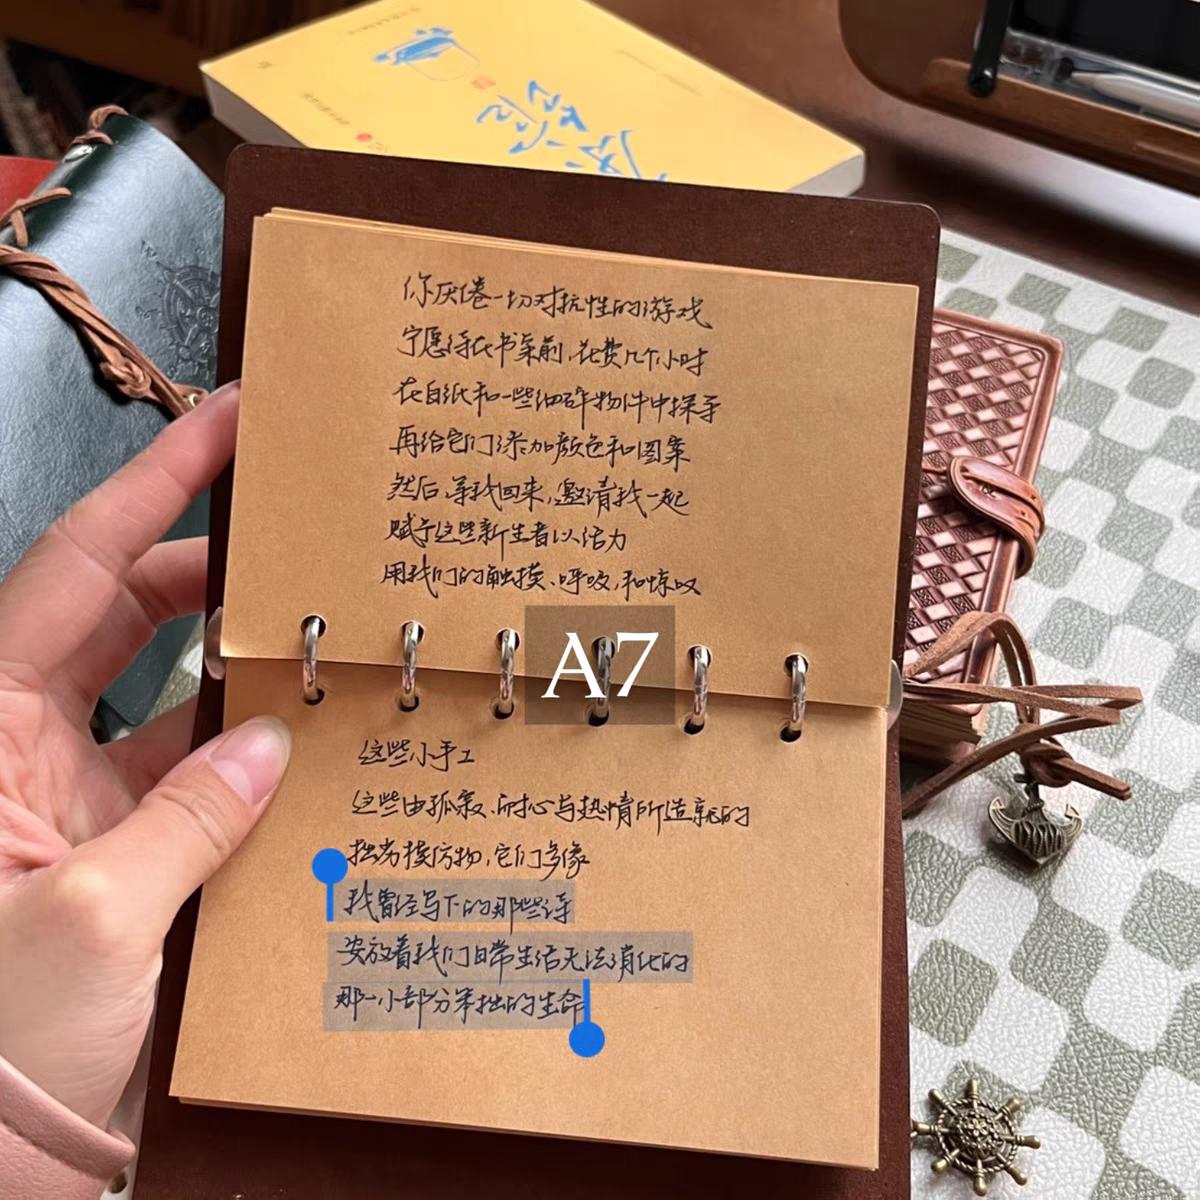 你厌倦一切对抗性的游戏
宁愿待在书桌前,花费几个小时
在白纸和一些细碎物件中探寻
再给它们添加颜色和图案
然后,等我回来,邀请我一起
赋予这些新生者以活力
用我们的触摸、呼吸,和惊叹
A7
这些小手工
这些由孤寂、耐心与热情所造就的
拙劣模仿物,它们多像
我曾经写下的那些诗
安放着我们日常生活无法消化的
那一小部分笨拙的生命